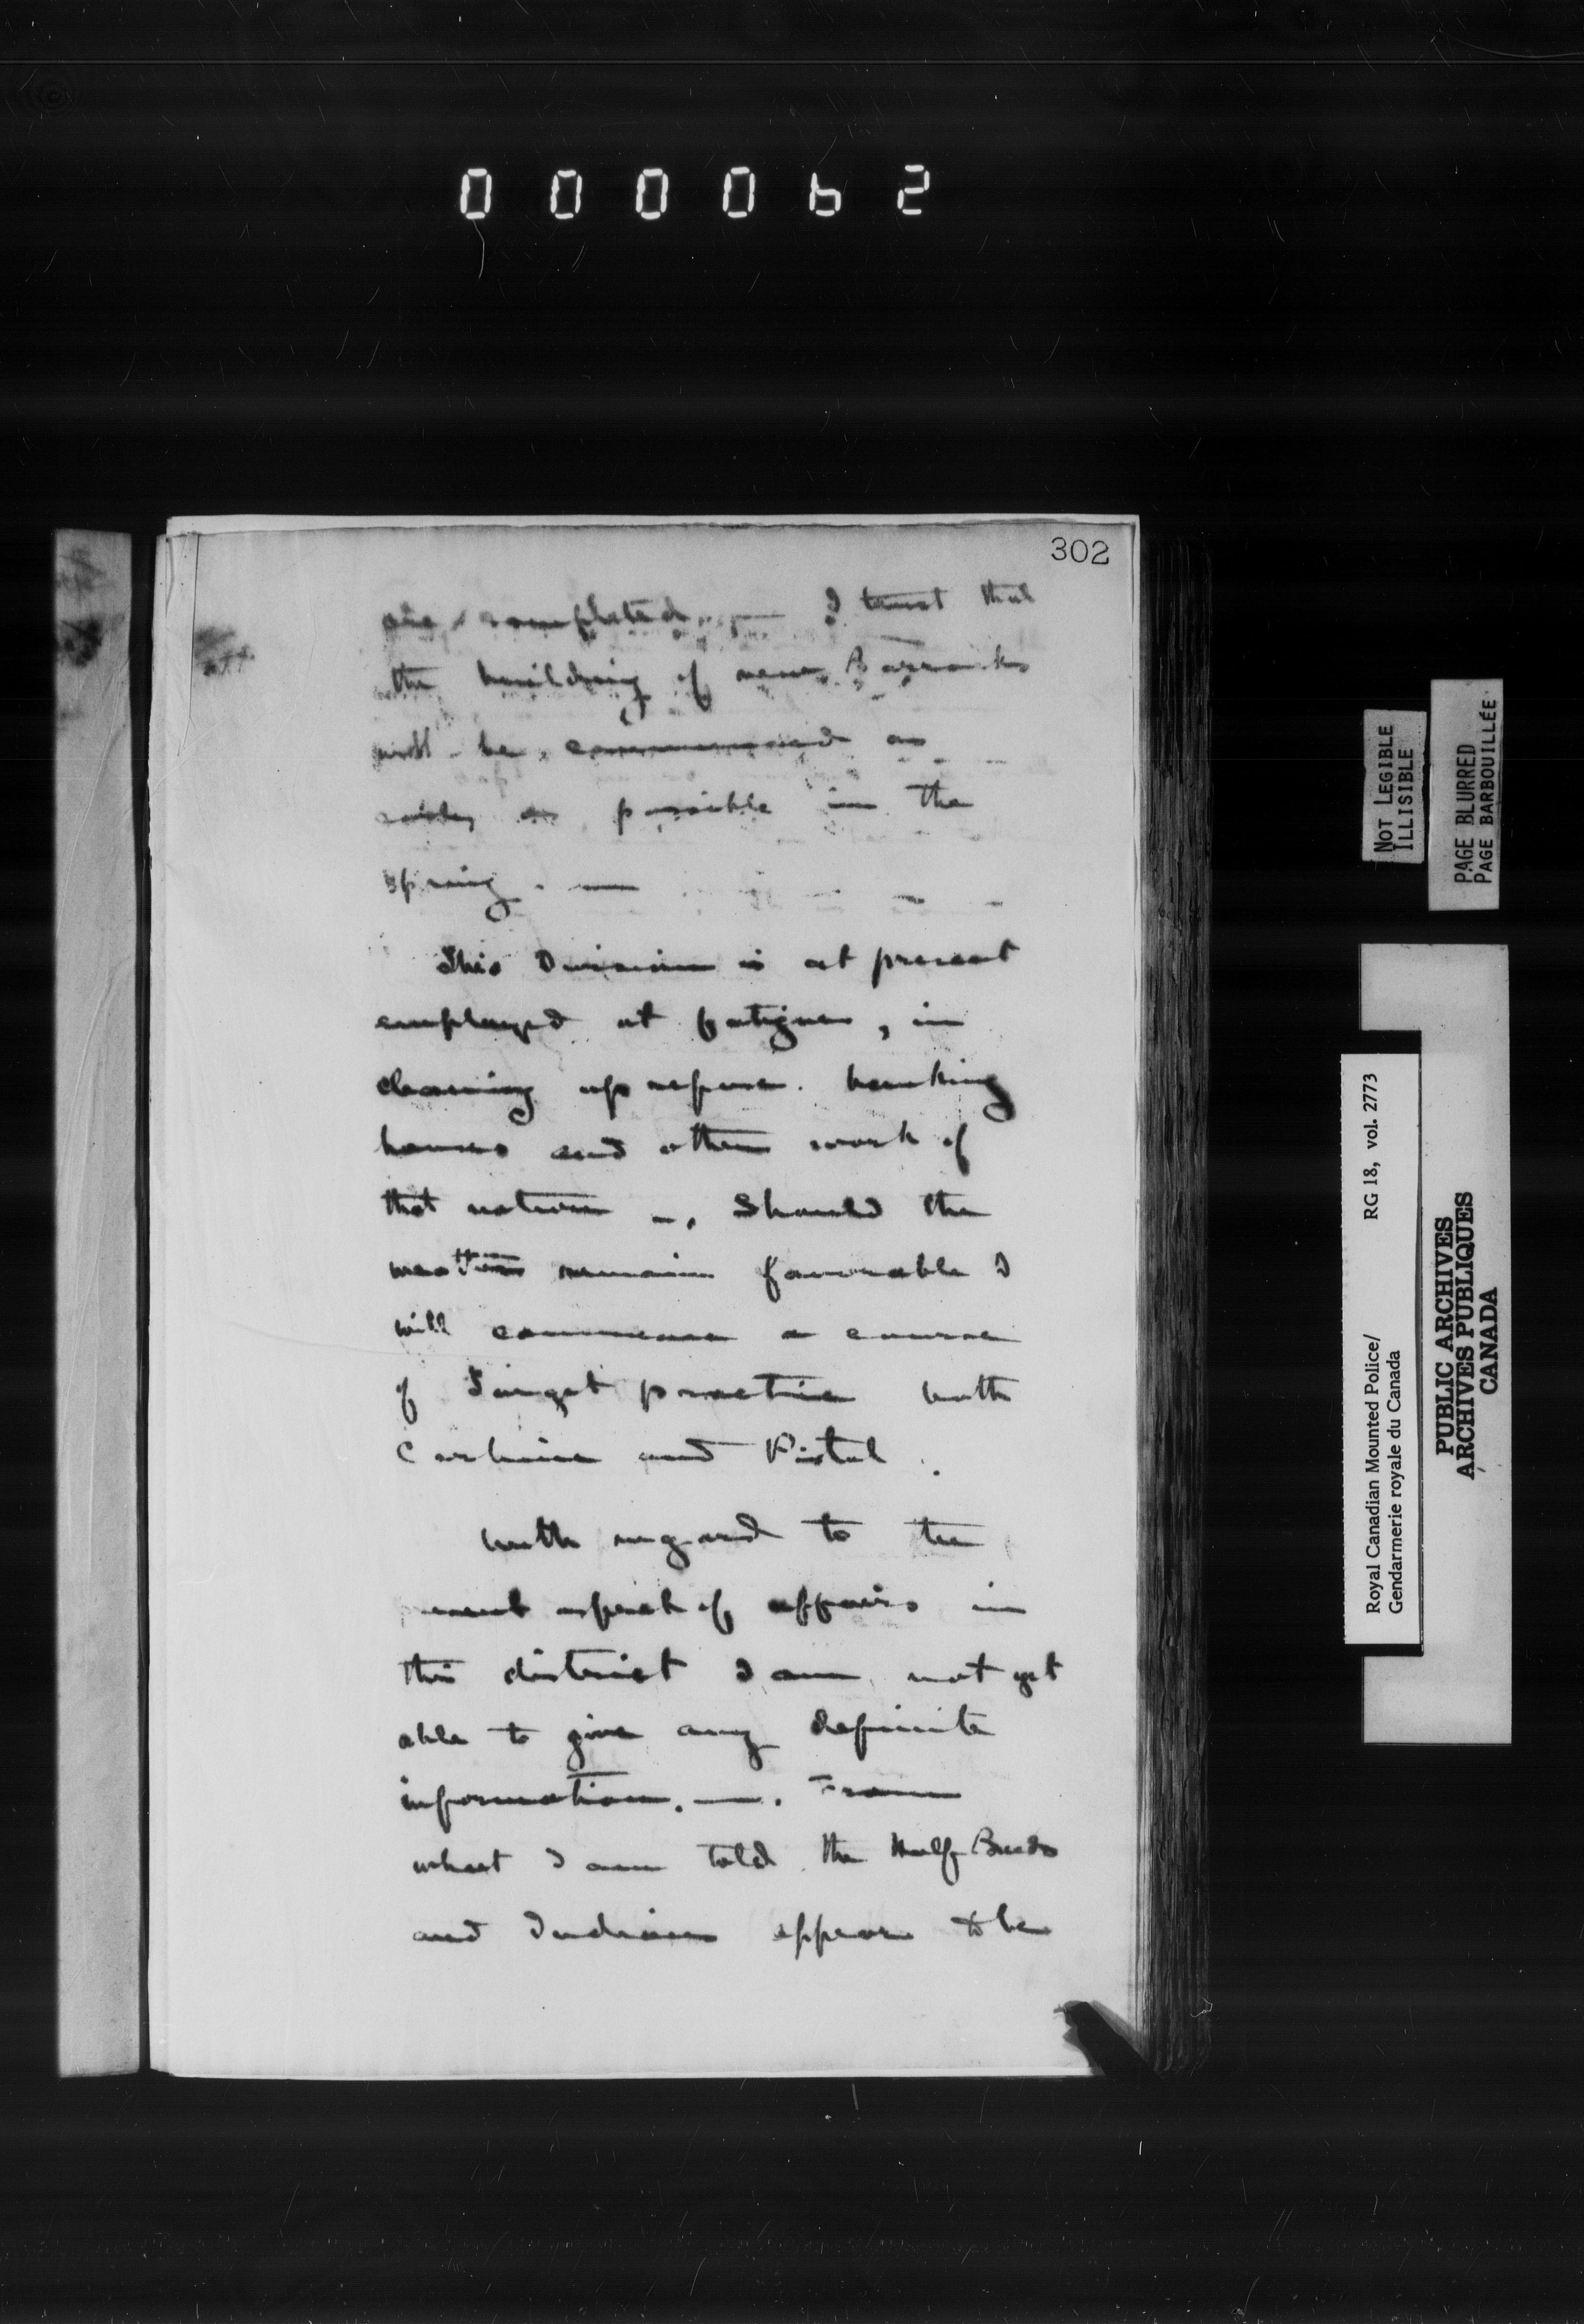 000062
302
are completed. — I trust that
the building of new Barracks
will be commenced as
early as possible in the
spring. —
This Division is at present
employed at fatigues, in
cleaning up refuse. banking
houses and other work of
that nature —. Should the
weather remain favourable I
will commence a course
of Target practice with
Carbine and Pistol.
With regard to the
aspect of affairs in
this district I am not yet
able to give any definite
information. —. From
what I am told the Half Breeds
and Indians appear to be
NOT LEGIBLE
ILLISIBLE
PAGE BLURRED
PAGE BARBOUILLÉE
Royal Canadian Mounted Police/ RG 18, vol. 2773
Gendarmerie royale du Canada
PUBLIC ARCHIVES
ARCHIVES PUBLIQUES
CANADA